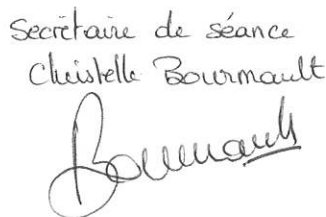 Secrétaire de séance
Christelle Bourmault
Bourmault